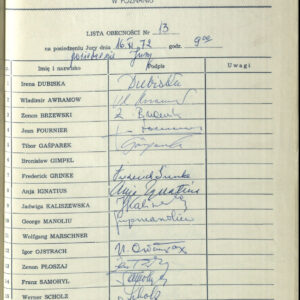 W POZNANIU
LISTA OBECNOŚCI Nr 13
na posiedzeniu Jury dnia 16.XI.72 godz. 9oo
posiedzenie Jury
Imię i nazwisko Podpis Uwagi
Irena DUBISKA Dubiska
Wladimir AWRAMOW
Zenon BRZEWSKI Z. Brzewski
Jean FOURNIER
Tibor GAŠPAREK Gašparek
Bronisław GIMPEL
Frederick GRINKE Frederick Grinke
Anja IGNATIUS Anja Ignatius
9 Jadwiga KALISZEWSKA
10 George MANOLIU
11 Wolfgang MARSCHNER
12 Igor OJSTRACH
13 Zenon PŁOSZAJ
14 Franz SAMOHYL Samohyl
15 Werner SCHOLZ Scholz